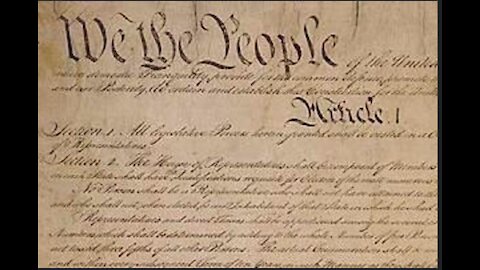 We the People of the United
domestic Tranquility, provide for the common defence, promote
and our Posterity, do ordain and establish this Constitution for the
Article. I
Section. 1. All legislative Powers herein granted shall be vested in a
of Representatives.
Section. 2. The House of Representatives shall be composed of Members
in each State shall have Qualifications requisite for Electors of the most
No Person shall be a Representative who shall not have attained to the
and who shall not, when elected, be an Inhabitant of that State in which he shall
Representatives and direct Taxes shall be apportioned among the
Numbers, which shall be determined by adding to the whole Number of free
not taxed, three fifths of all other Persons. The actual Enumeration shall
and within every subsequent Term of ten